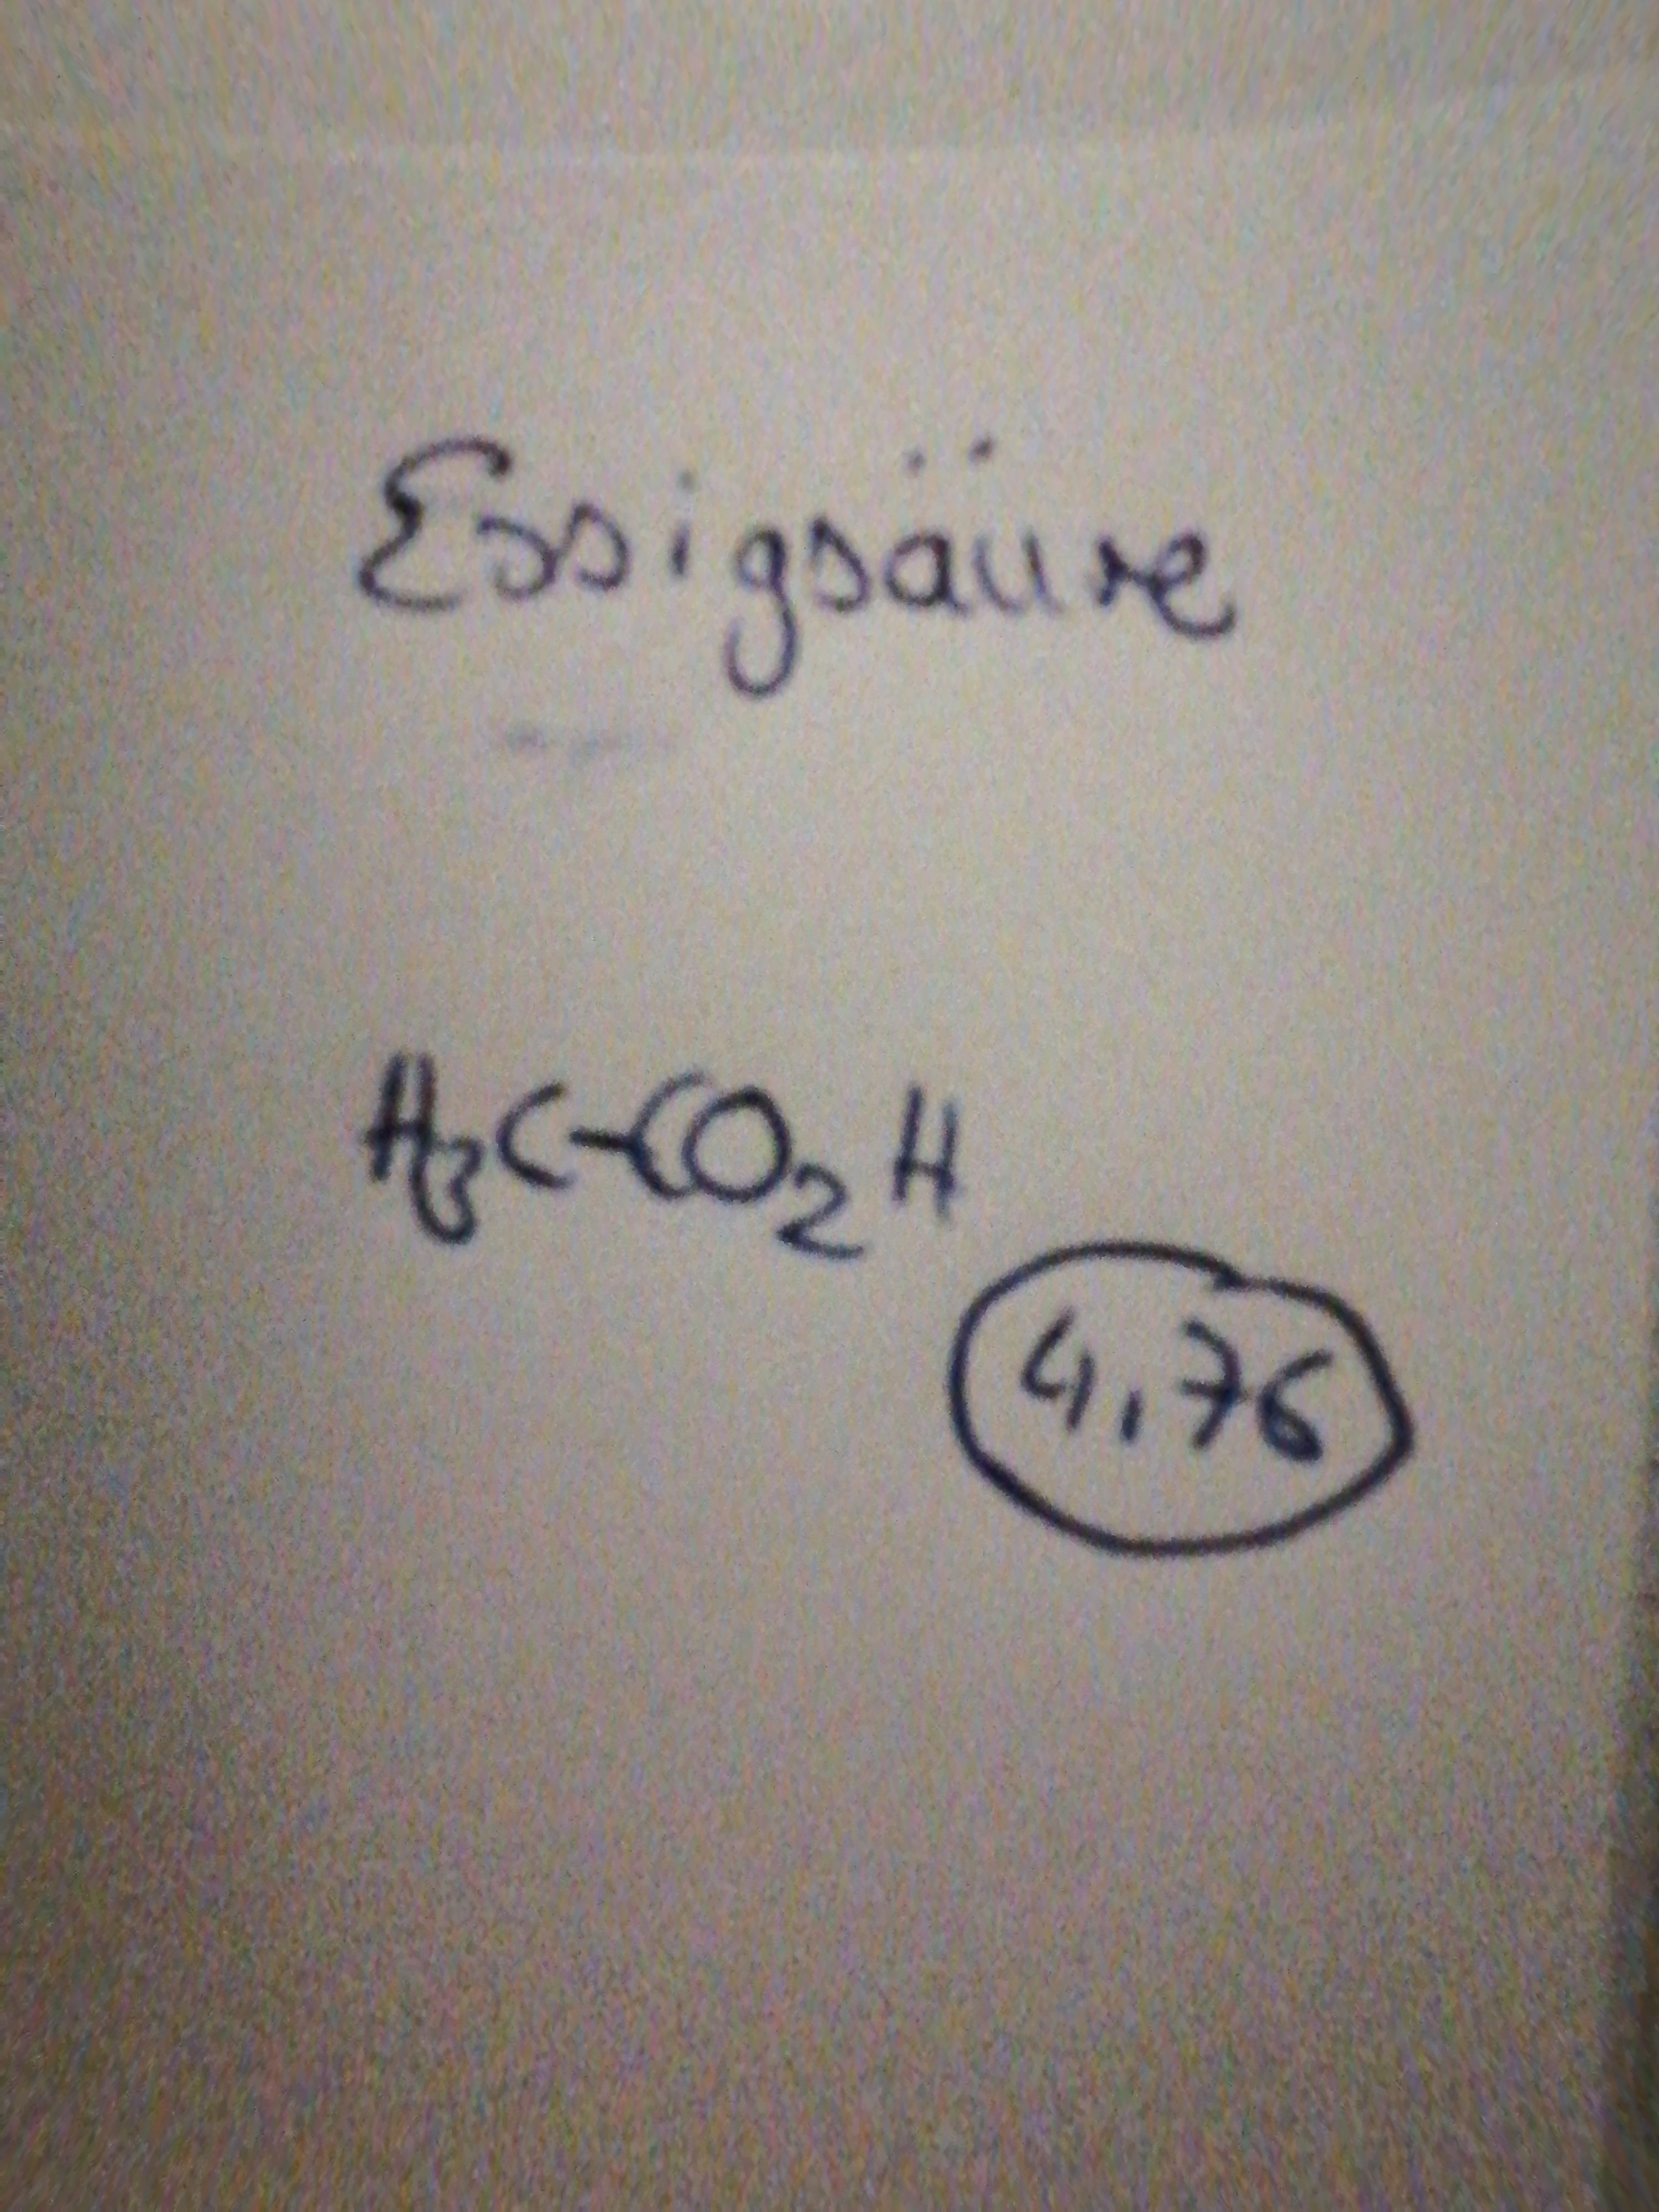 Essigsäure
H₃C-CO₂H
4,76